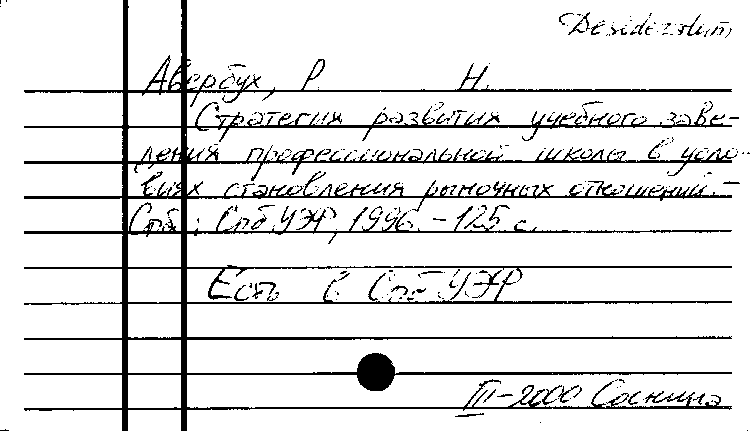 Desideratum
Авербух, Р. Н.
Стратегия развития учебного заве-
дения профессиональной школы в усло-
виях становления рыночных отношений. –
Спб : СпбУЭФ, 1996. – 125 с.
Есть в СпбУЭФ
III–2000 Соснина